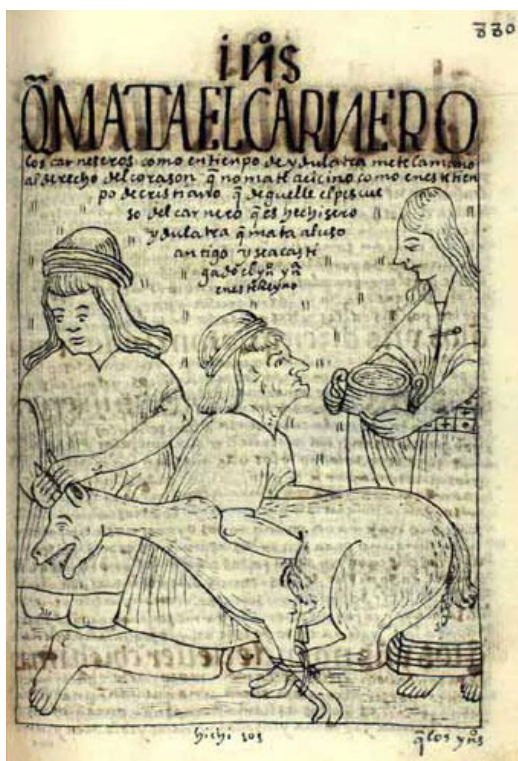 880
iñs
Q̃ MATA EL CARNERO
los carneseros como en tienpo de ydulatra mete la mano
al derecho del corason q̃ no mate acicino como en este tien
po de cristiano q̃ deguelle el pescue
so del carnero q̃ es hechisero
ydulatra q̃ mata al uso
antigo y sea casti
gado el yn̄ yn̄a
en este rreyno
q̃ los yn̄s